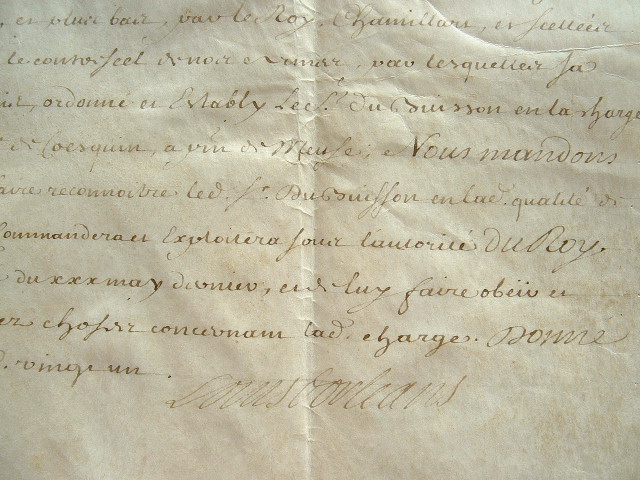 , et plus bas, par le Roy, Chamillart, et scellées
le contrescel de noir et , par lesquelles sa
ordonné et Estably Led. Sr. du Buisson en la charge
de Coesquin, a pnt de Meuse, e Nous mandons
faire reconnoitre led. Sr. Du Buisson en lad. qualité de
Commandera et Exploitera sour l'autorité Du Roy,
du xxx may dernier, et de luy faire obeïr et
choses concernam lad. charge. Donné
vingt un.
Louis d'orleans